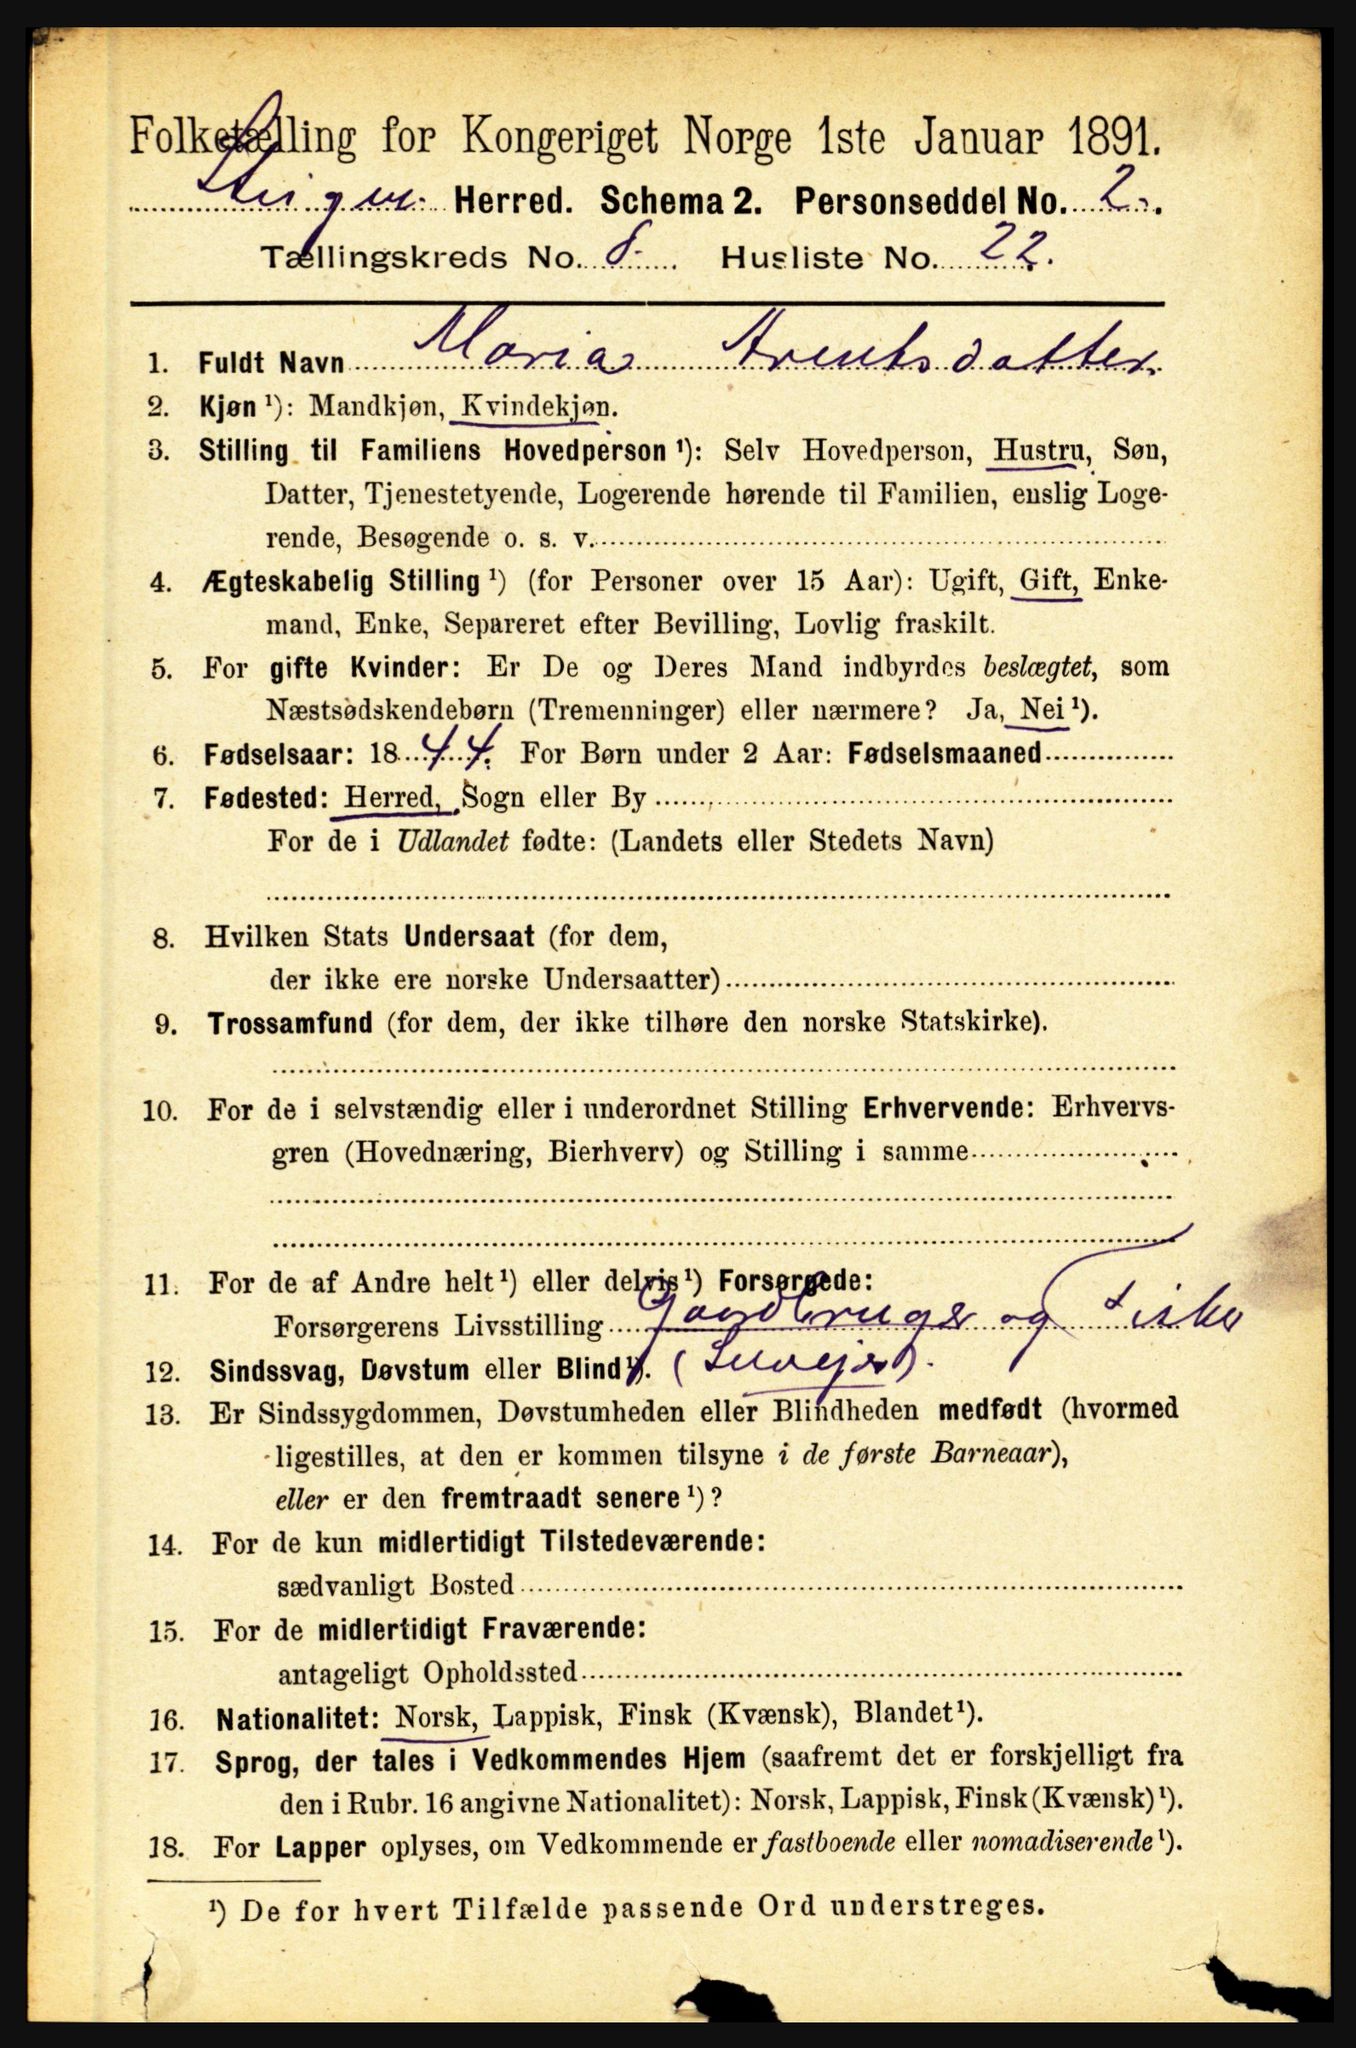 Folketælling for Kongeriget Norge 1ste Januar 1891.
Steigen. Herred. Schema 2. Personseddel No. 2.
Tællingskreds No. 8. Husliste No. 22.
1. Fuldt Navn Maria Arentsdatter.
2. Kjøn ¹): Mandkjøn, Kvindekjøn.
3. Stilling til Familiens Hovedperson ¹): Selv Hovedperson, Hustru, Søn,
Datter, Tjenestetyende, Logerende hørende til Familien, enslig Loge-
rende, Besøgende o. s. v.
4. Ægteskabelig Stilling ¹) (for Personer over 15 Aar): Ugift, Gift, Enke-
mand, Enke, Separeret efter Bevilling, Lovlig fraskilt.
5. For gifte Kvinder: Er De og Deres Mand indbyrdes beslægtet, som
Næstsødskendebørn (Tremenninger) eller nærmere? Ja, Nei ¹).
6. Fødselsaar: 1844. For Børn under 2 Aar: Fødselsmaaned
7. Fødested: Herred, Sogn eller By
For de i Udlandet fødte: (Landets eller Stedets Navn)
8. Hvilken Stats Undersaat (for dem,
der ikke ere norske Undersaatter)
9. Trossamfund (for dem, der ikke tilhøre den norske Statskirke).
10. For de i selvstændig eller i underordnet Stilling Erhvervende: Erhvervs-
gren (Hovednæring, Bierhverv) og Stilling i samme
11. For de af Andre helt ¹) eller delvis ¹) Forsørgede:
Forsørgerens Livsstilling Gaardbruger og Fisker
12. Sindssvag, Døvstum eller Blind ¹). (Selvejer).
13. Er Sindssygdommen, Døvstumheden eller Blindheden medfødt (hvormed
ligestilles, at den er kommen tilsyne i de første Barneaar),
eller er den fremtraadt senere ¹)?
14. For de kun midlertidigt Tilstedeværende:
sædvanligt Bosted
15. For de midlertidigt Fraværende:
antageligt Opholdssted
16. Nationalitet: Norsk, Lappisk, Finsk (Kvænsk), Blandet ¹).
17. Sprog, der tales i Vedkommendes Hjem (saafremt det er forskjelligt fra
den i Rubr. 16 angivne Nationalitet): Norsk, Lappisk, Finsk (Kvænsk) ¹).
18. For Lapper oplyses, om Vedkommende er fastboende eller nomadiserende ¹).
¹) De for hvert Tilfælde passende Ord understreges.